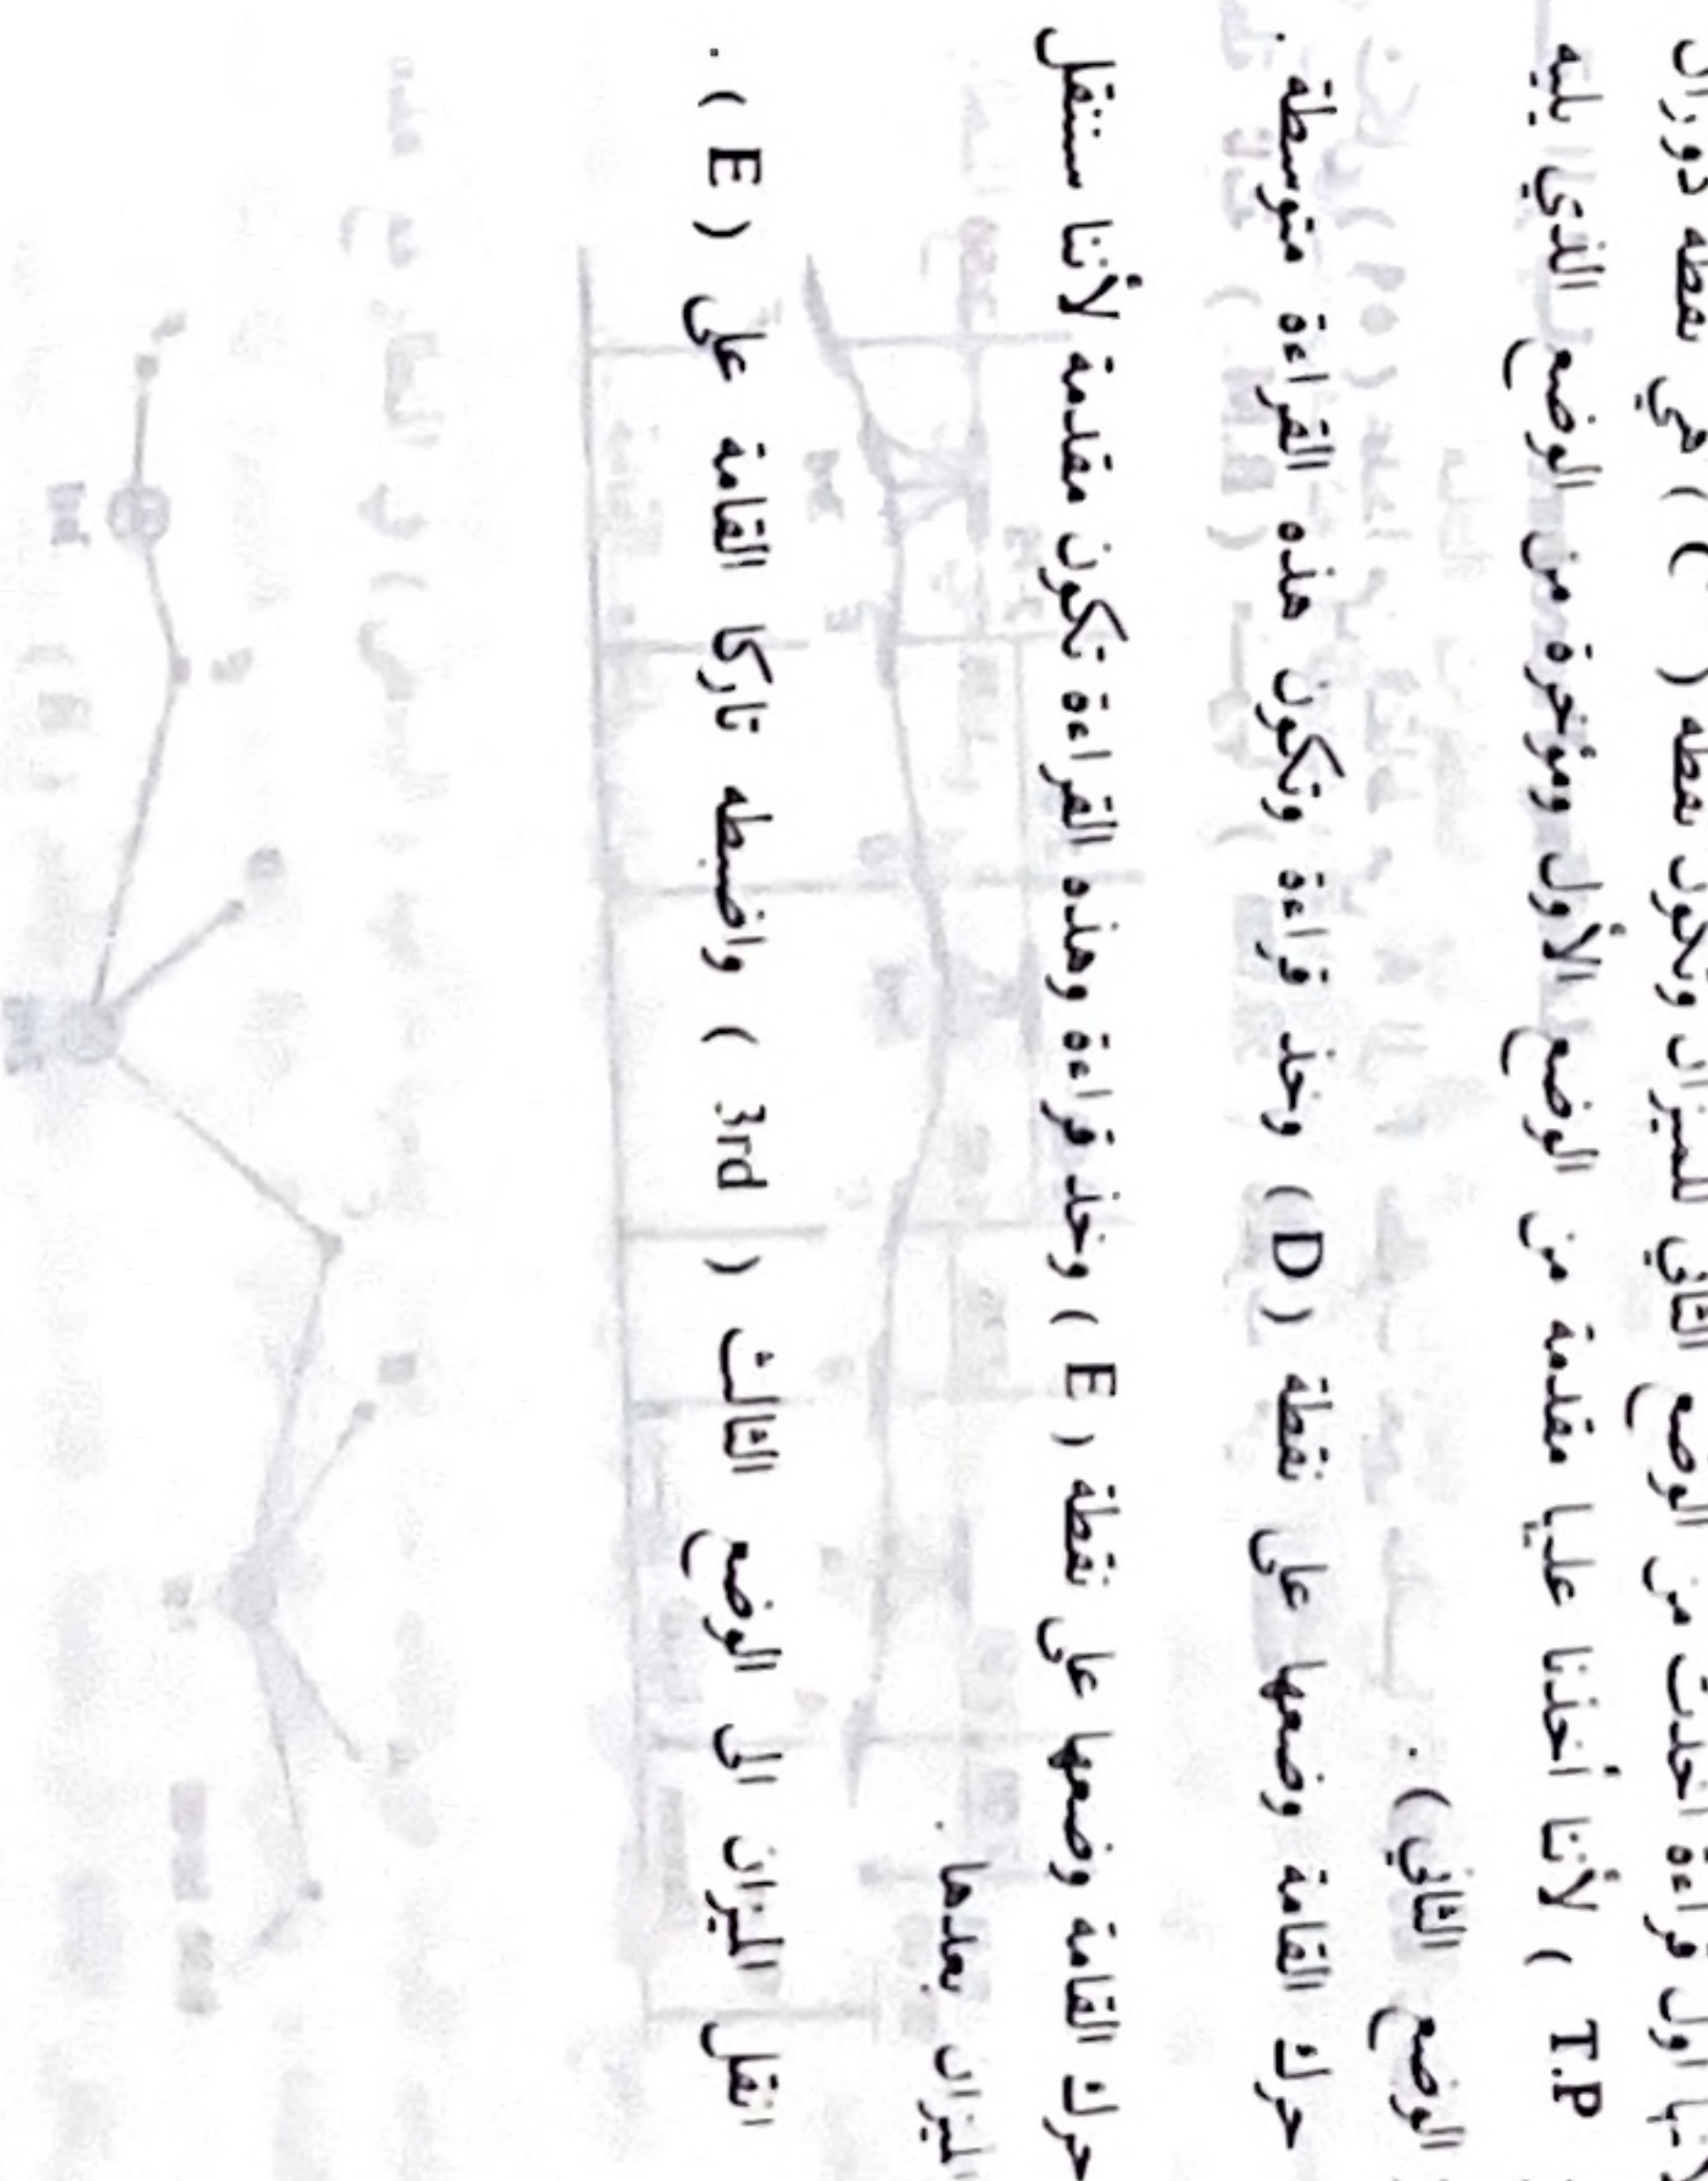 لأنها اول قراءة اخذت من الوضع الثاني للميزان وتكون نقطة ( ) هي نقطة دوران
T.P ) لأننا أخذنا عليها مقدمة من الوضع الأول ومؤخرة من الوضع الذي يليه
الوضع الثاني) .
حرك القامة وضعها على نقطة (D) وخذ قراءة وتكون هذه القراءة متوسطة .
حرك القامة وضعها على نقطة ( E ) وخذ قراءة وهذه القراءة تكون مقدمة لأننا سننقل
الميزان بعدها .
انقل الميزان الى الوضع الثالث ( 3rd ) واضبطه تاركا القامة على ( E ) .